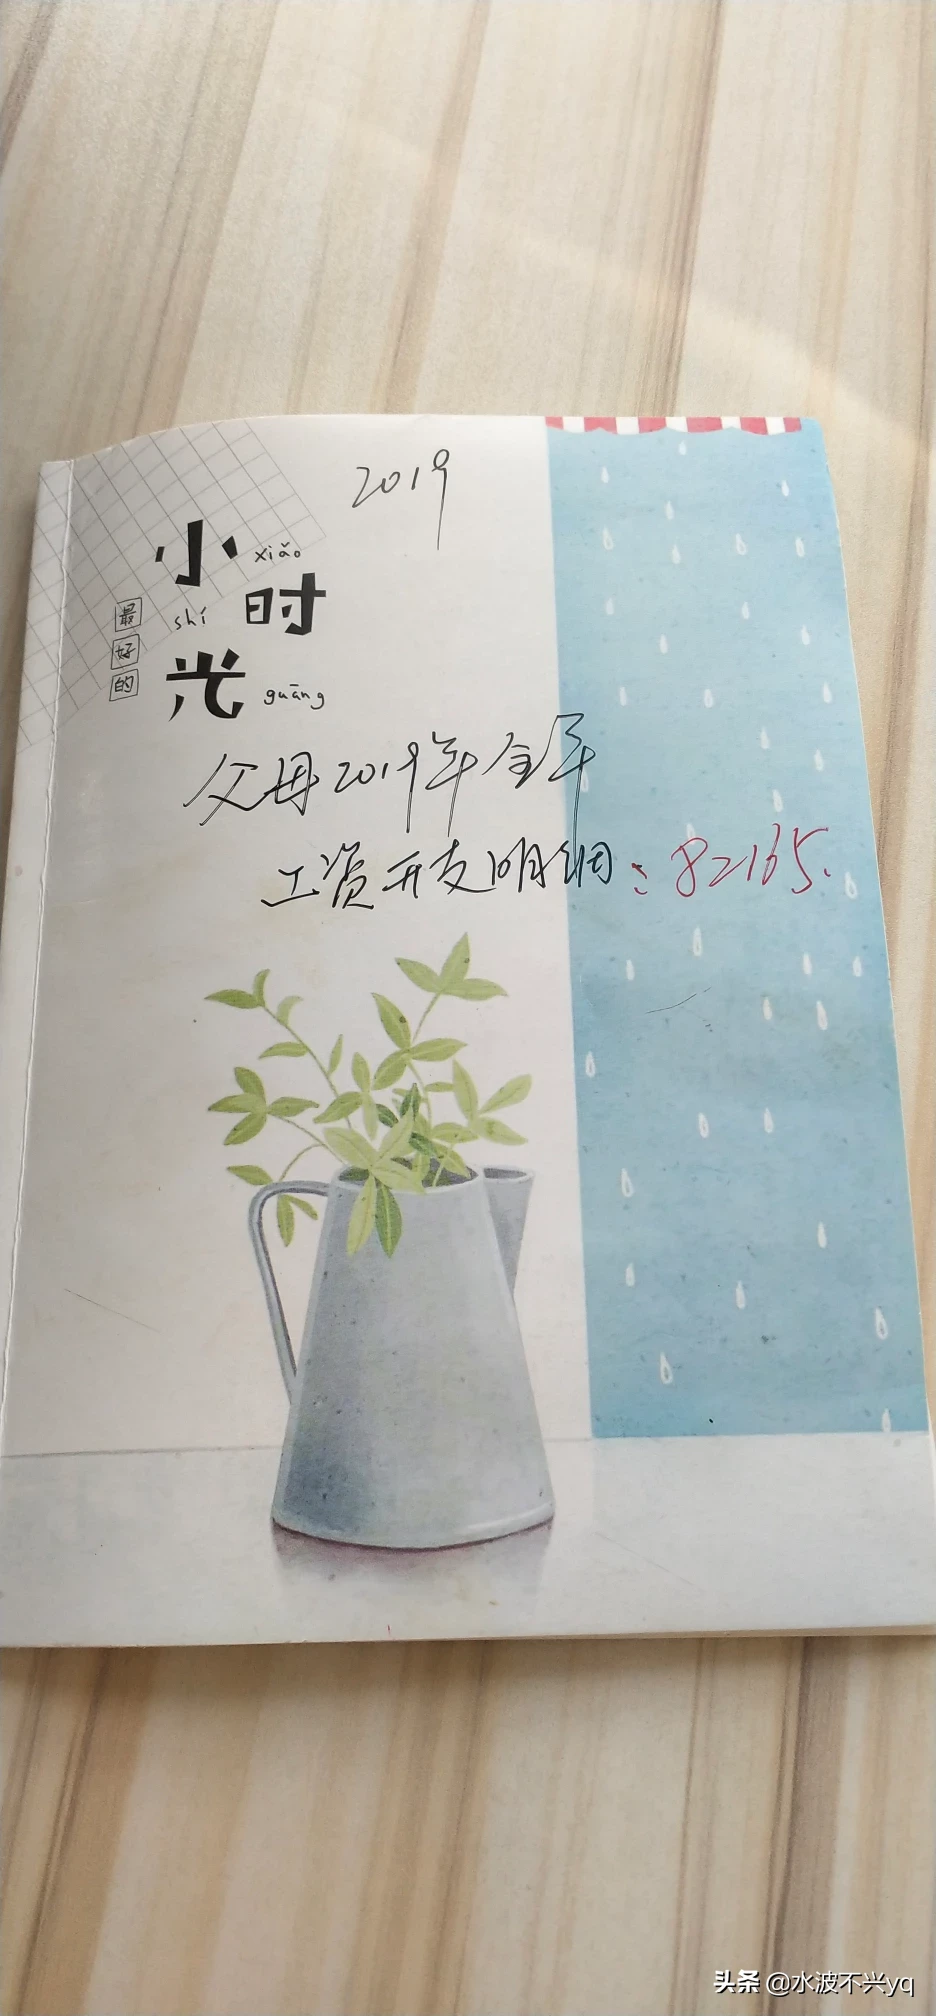 2019
小 xiǎo
shí 时
最好的
光 guāng
父母2019年全年
工资开支明细：82165.
头条 @水波不兴yq